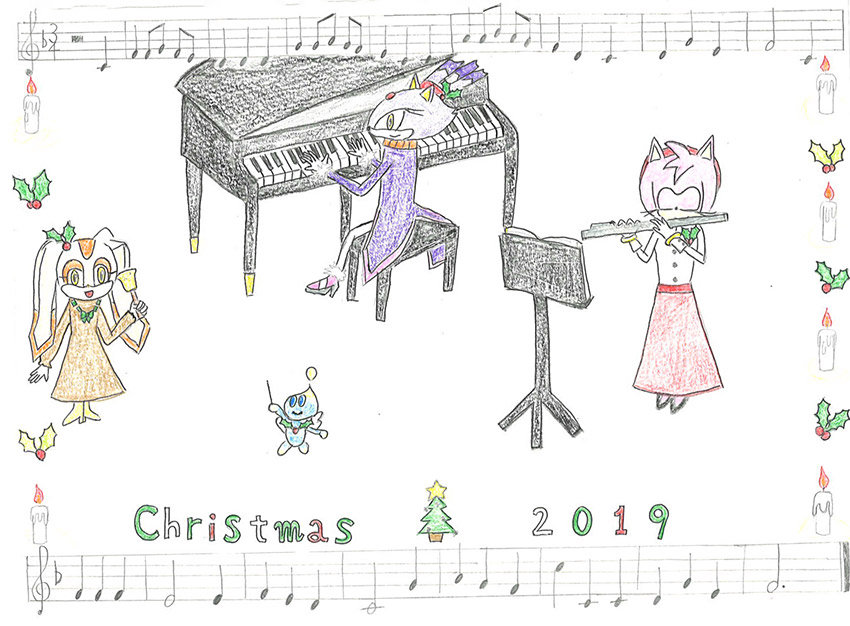 Christmas 2019